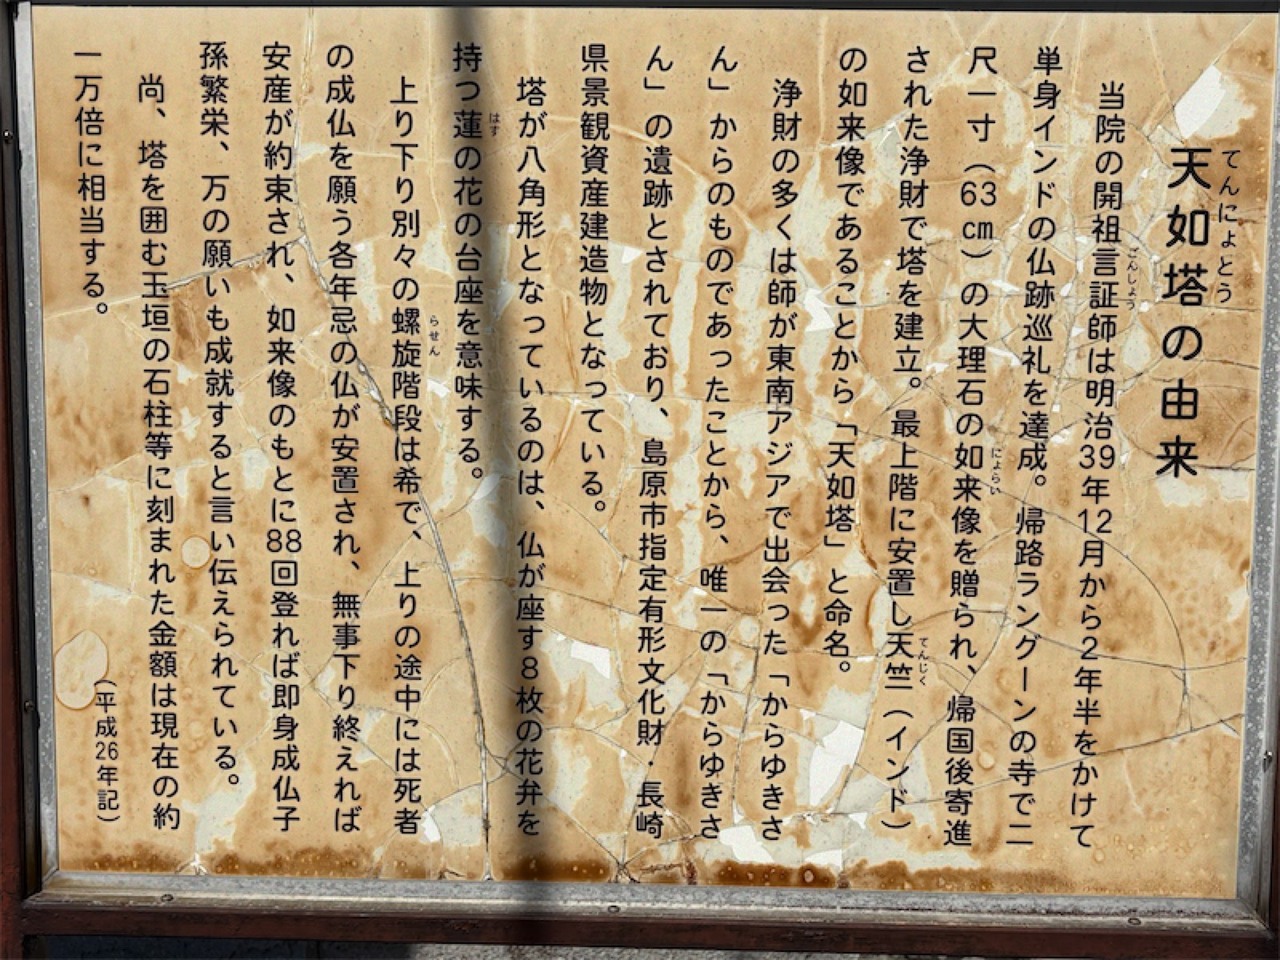 天如塔の由来
てんにょとう
当院の開祖言証師は明治39年12月から2年半をかけて
ごんしょう
単身インドの仏跡巡礼を達成。帰路ラングーンの寺で二
尺一寸（63cm）の大理石の如来像を贈られ、帰国後寄進
にょらい
された浄財で塔を建立。最上階に安置し天竺（インド）
てんじく
の如来像であることから「天如塔」と命名。
浄財の多くは師が東南アジアで出会った「からゆきさ
ん」からのものであったことから、唯一の「からゆきさ
ん」の遺跡とされており、島原市指定有形文化財・長崎
県景観資産建造物となっている。
塔が八角形となっているのは、仏が座す8枚の花弁を
持つ蓮の花の台座を意味する。
はす
上り下り別々の螺旋階段は希で、上りの途中には死者
らせん
の成仏を願う各年忌の仏が安置され、無事下り終えれば
安産が約束され、如来像のもとに88回登れば即身成仏子
孫繁栄、万の願いも成就すると言い伝えられている。
尚、塔を囲む玉垣の石柱等に刻まれた金額は現在の約
一万倍に相当する。
（平成26年記）